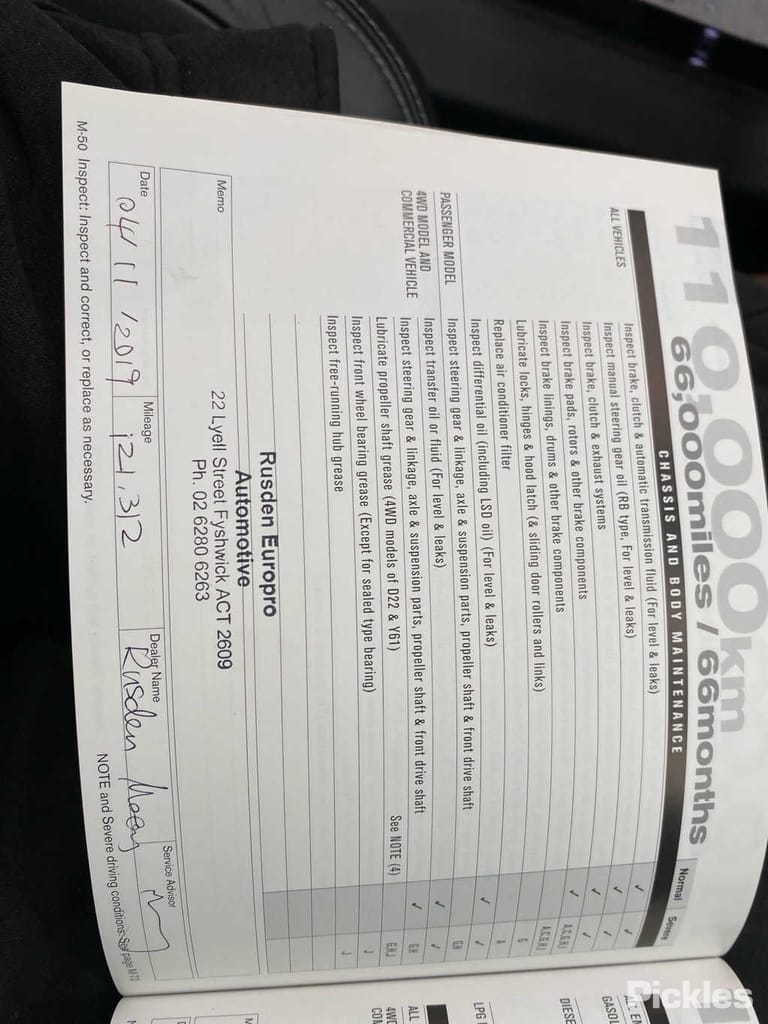 110,000km
66,000miles / 66months
CHASSIS AND BODY MAINTENANCE
Normal Severe
ALL VEHICLES
Inspect brake, clutch & automatic transmission fluid (For level & leaks) ✓ ✓
Inspect manual steering gear oil (RB type, For level & leaks) ✓ ✓
Inspect brake, clutch & exhaust systems ✓ ✓
Inspect brake pads, rotors & other brake components ✓ A,C,G,H,I
Inspect brake linings, drums & other brake components A,C,G,H,I
Lubricate locks, hinges & hood latch (& sliding door rollers and links) G
Replace air conditioner filter A
Inspect differential oil (including LSD oil) (For level & leaks) ✓ ✓
PASSENGER MODEL
Inspect steering gear & linkage, axle & suspension parts, propeller shaft & front drive shaft G,H
4WD MODEL AND
COMMERCIAL VEHICLE
Inspect transfer oil or fluid (For level & leaks) ✓ ✓
Inspect steering gear & linkage, axle & suspension parts, propeller shaft & front drive shaft ✓ G,H
Lubricate propeller shaft grease (4WD models of D22 & Y61) See NOTE (4) G,H,J
Inspect front wheel bearing grease (Except for sealed type bearing) J
Inspect free-running hub grease J
Memo
Rusden Europro
Automotive
22 Lyell Street Fyshwick ACT 2609
Ph. 02 6280 6263
Date 04/11/2019
Mileage 121,312
Dealer Name Rusden
Service Advisor
M-50 Inspect: Inspect and correct, or replace as necessary.
NOTE and Severe driving conditions: See page M-71
ALL EN
GASOL
DIESE
LPG
ALL
4WD
COM
M
D
N
Pickles